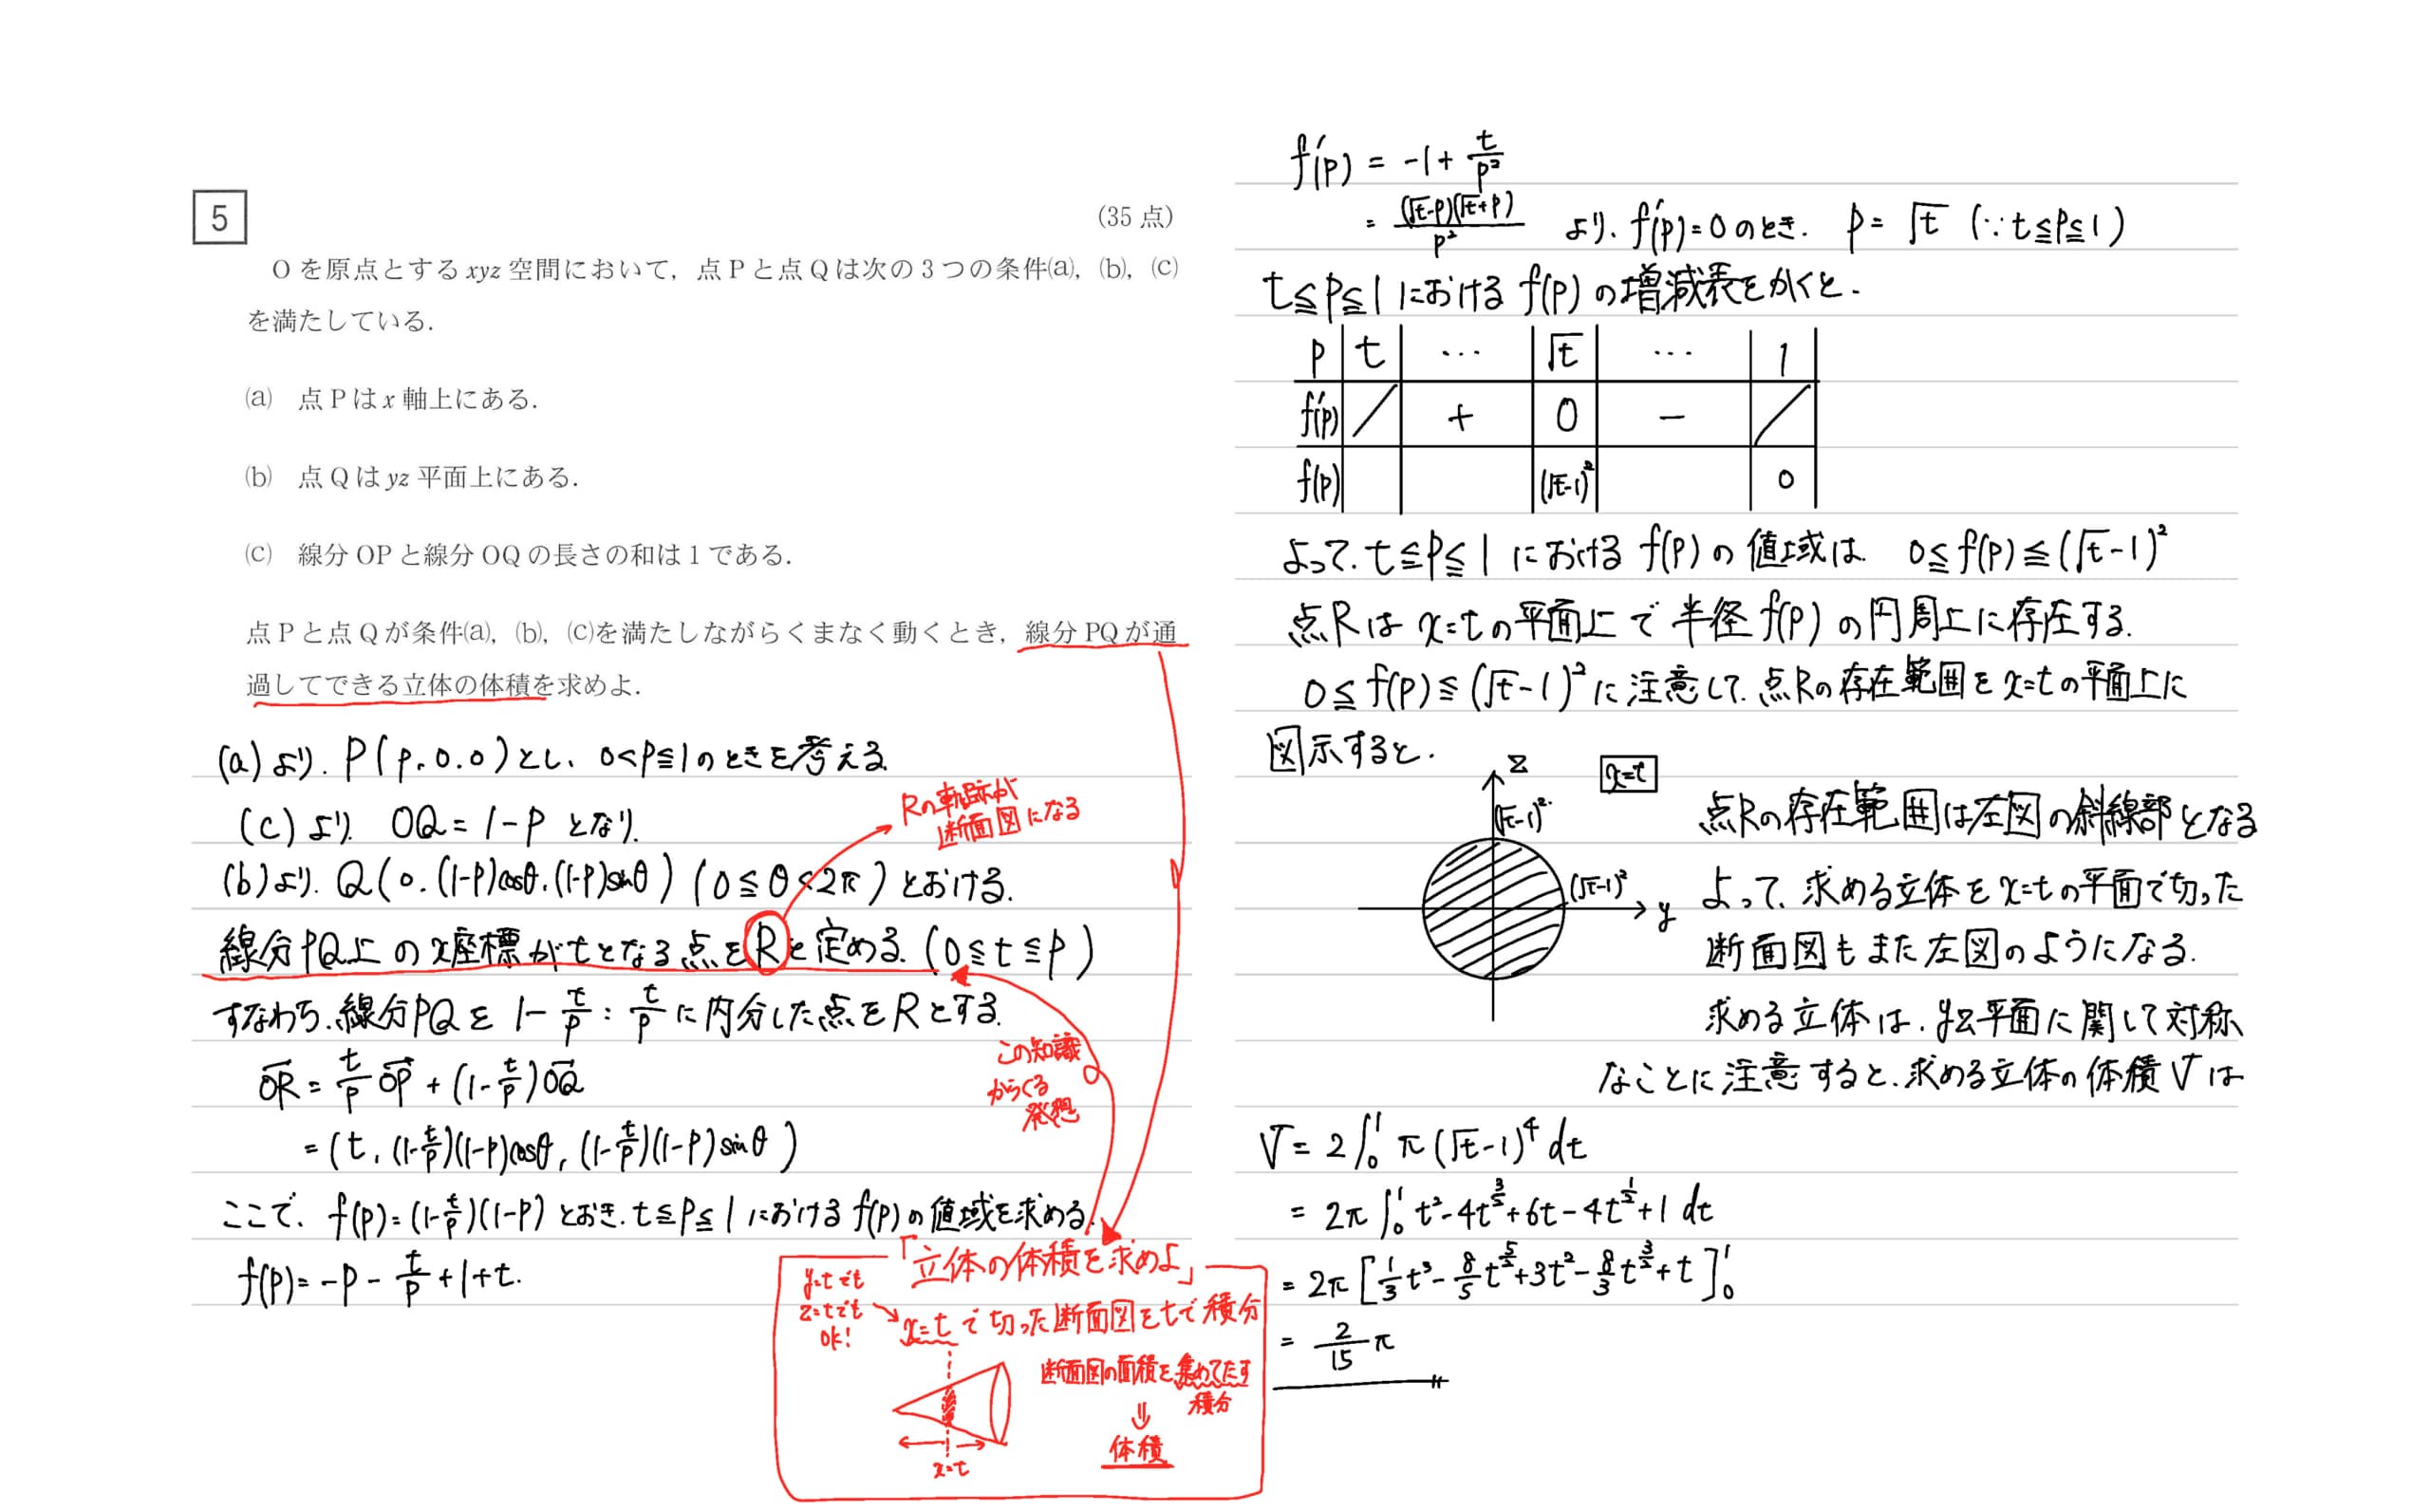 5
(35 点)
O を原点とする xyz 空間において，点 P と点 Q は次の 3 つの条件(a)，(b)，(c)
を満たしている．
(a) 点 P は x 軸上にある．
(b) 点 Q は yz 平面上にある．
(c) 線分 OP と線分 OQ の長さの和は 1 である．
点 P と点 Q が条件(a)，(b)，(c)を満たしながらくまなく動くとき，線分 PQ が通
過してできる立体の体積を求めよ．
(a)より、P(p, 0, 0)とし、0<p≦1のときを考える
(c)より OQ = 1-p となり
(b)より、Q(0, (1-p)cosθ, (1-p)sinθ) (0≦θ<2π) とおける.
線分PQ上のx座標がtとなる点をRと定める (0≦t≦p)
すなわち、線分PQを 1-t/p : t/p に内分した点をRとする
OR→ = t/p OP→ + (1-t/p)OQ→
= (t, (1-t/p)(1-p)cosθ, (1-t/p)(1-p)sinθ)
ここで、f(p)=(1-t/p)(1-p) とおき、t≦p≦1 における f(p) の値域を求める.
f(p)= -p - t/p + 1 + t.
Rの軌跡が
断面図になる
この知識
からくる
発想
「立体の体積を求めよ」
y=tでも
z=tでも
OK!
x=t で切った断面図をtで積分
断面図の面積を集めてたす
積分
⇓
体積
x=t
f'(p) = -1 + t/p²
= (√t-p)(√t+p)/p² より、f'(p)=0 のとき、p = √t (∵ t≦p≦1)
t≦p≦1 における f(p) の増減表をかくと、
p t … √t … 1
f'(p) ／ + 0 - ／
f(p) (√t-1)² 0
よって、t≦p≦1 における f(p) の値域は 0≦f(p)≦(√t-1)²
点Rは x=t の平面上で半径 f(p) の円周上に存在する.
0≦f(p)≦(√t-1)² に注意して、点Rの存在範囲を x=t の平面上に
図示すると、
z
x=t
(√t-1)²
(√t-1)²
y
点Rの存在範囲は左図の斜線部となる
よって、求める立体を x=t の平面で切った
断面図もまた左図のようになる.
求める立体は、yz平面に関して対称
なことに注意すると、求める立体の体積 V は
V = 2∫₀¹ π(√t-1)⁴ dt
= 2π∫₀¹ t²-4t^(3/2)+6t-4t^(1/2)+1 dt
= 2π[1/3 t³ - 8/5 t^(5/2) + 3t² - 8/3 t^(3/2) + t]₀¹
= 2/15 π